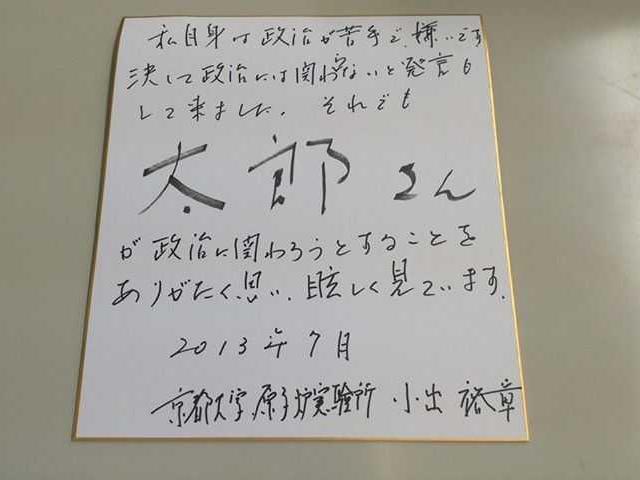 私自身は政治が苦手で、嫌いです
決して政治には関わらないと発言も
して来ました。それでも
太郎さん
が政治に関わろうとすることを
ありがたく思い、眩しく見ています。
2013年7月
京都大学原子炉実験所 小出 裕章